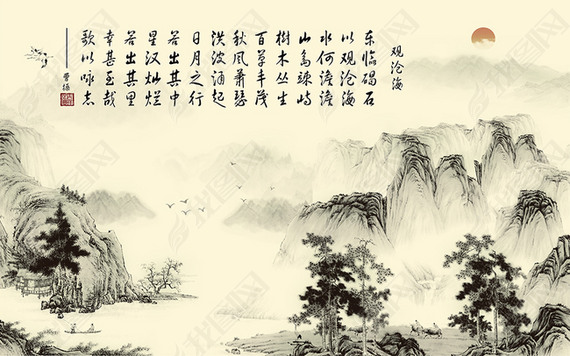 观沧海
东临碣石
以观沧海
水何澹澹
山岛竦峙
树木丛生
百草丰茂
秋风萧瑟
洪波涌起
日月之行
若出其中
星汉灿烂
若出其里
幸甚至哉
歌以咏志
曹操